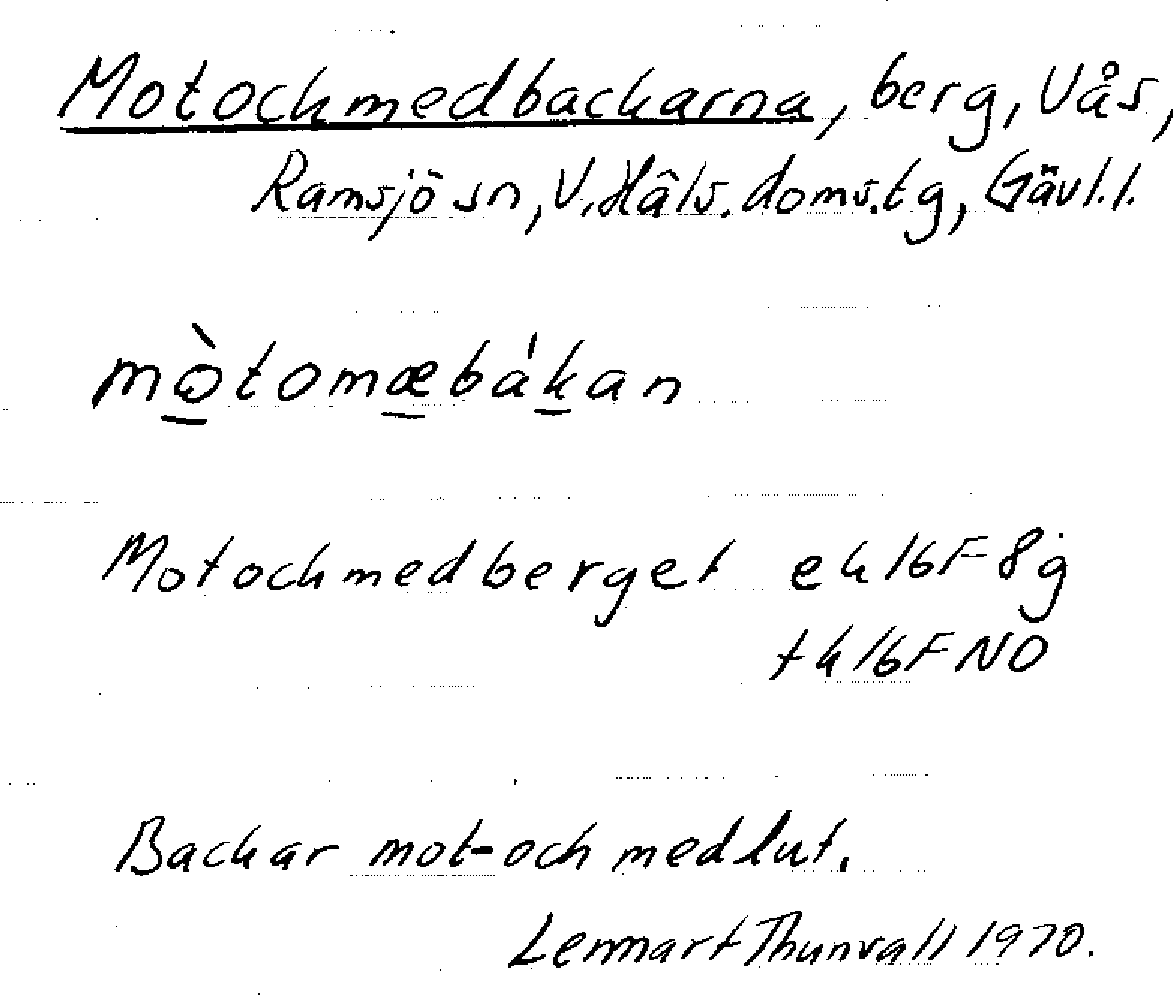 Motochmedbackarna, berg, Vås,
Ramsjö sn, V. Häls. doms. tg, Gävl. l.
mὼ̲tomæ̲bák̲an
Motochmedberget ek 16F 8g
tk 16F NO
Backar mot- och medlut.
Lennart Thunvall 1970.